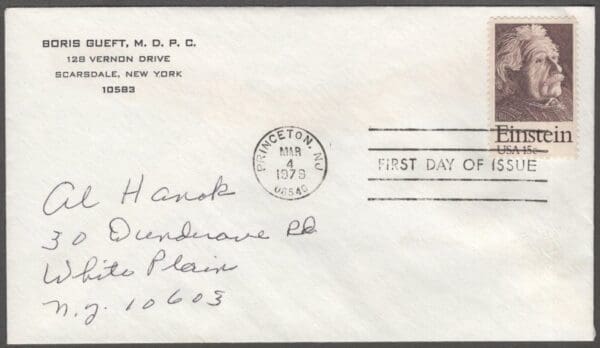 BORIS GUEFT, M. D. P. C.
128 VERNON DRIVE
SCARSDALE, NEW YORK
10583
Einstein
USA 15c
PRINCETON, NJ
MAR
4
1979
08540
FIRST DAY OF ISSUE
Al Hanok
30 Dundrave Rd
White Plain
N.Y. 10603